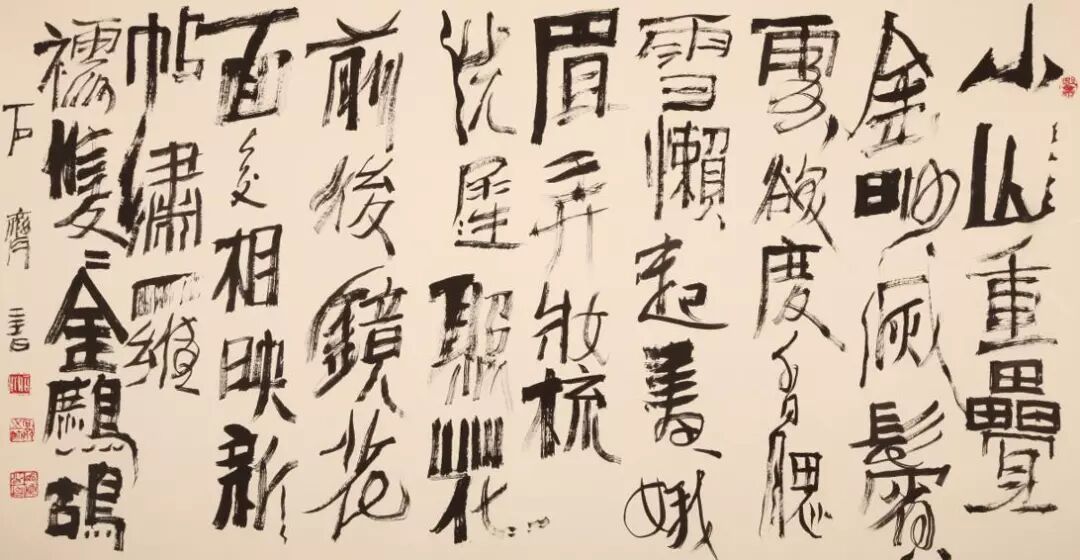 小山重疊
金明滅鬢
雲欲度香腮
雪懶起畫娥
眉弄妝梳
洗遲照花
前後鏡花
面交相映新
帖繡羅
襦雙〻金鷓鴣
石齊書